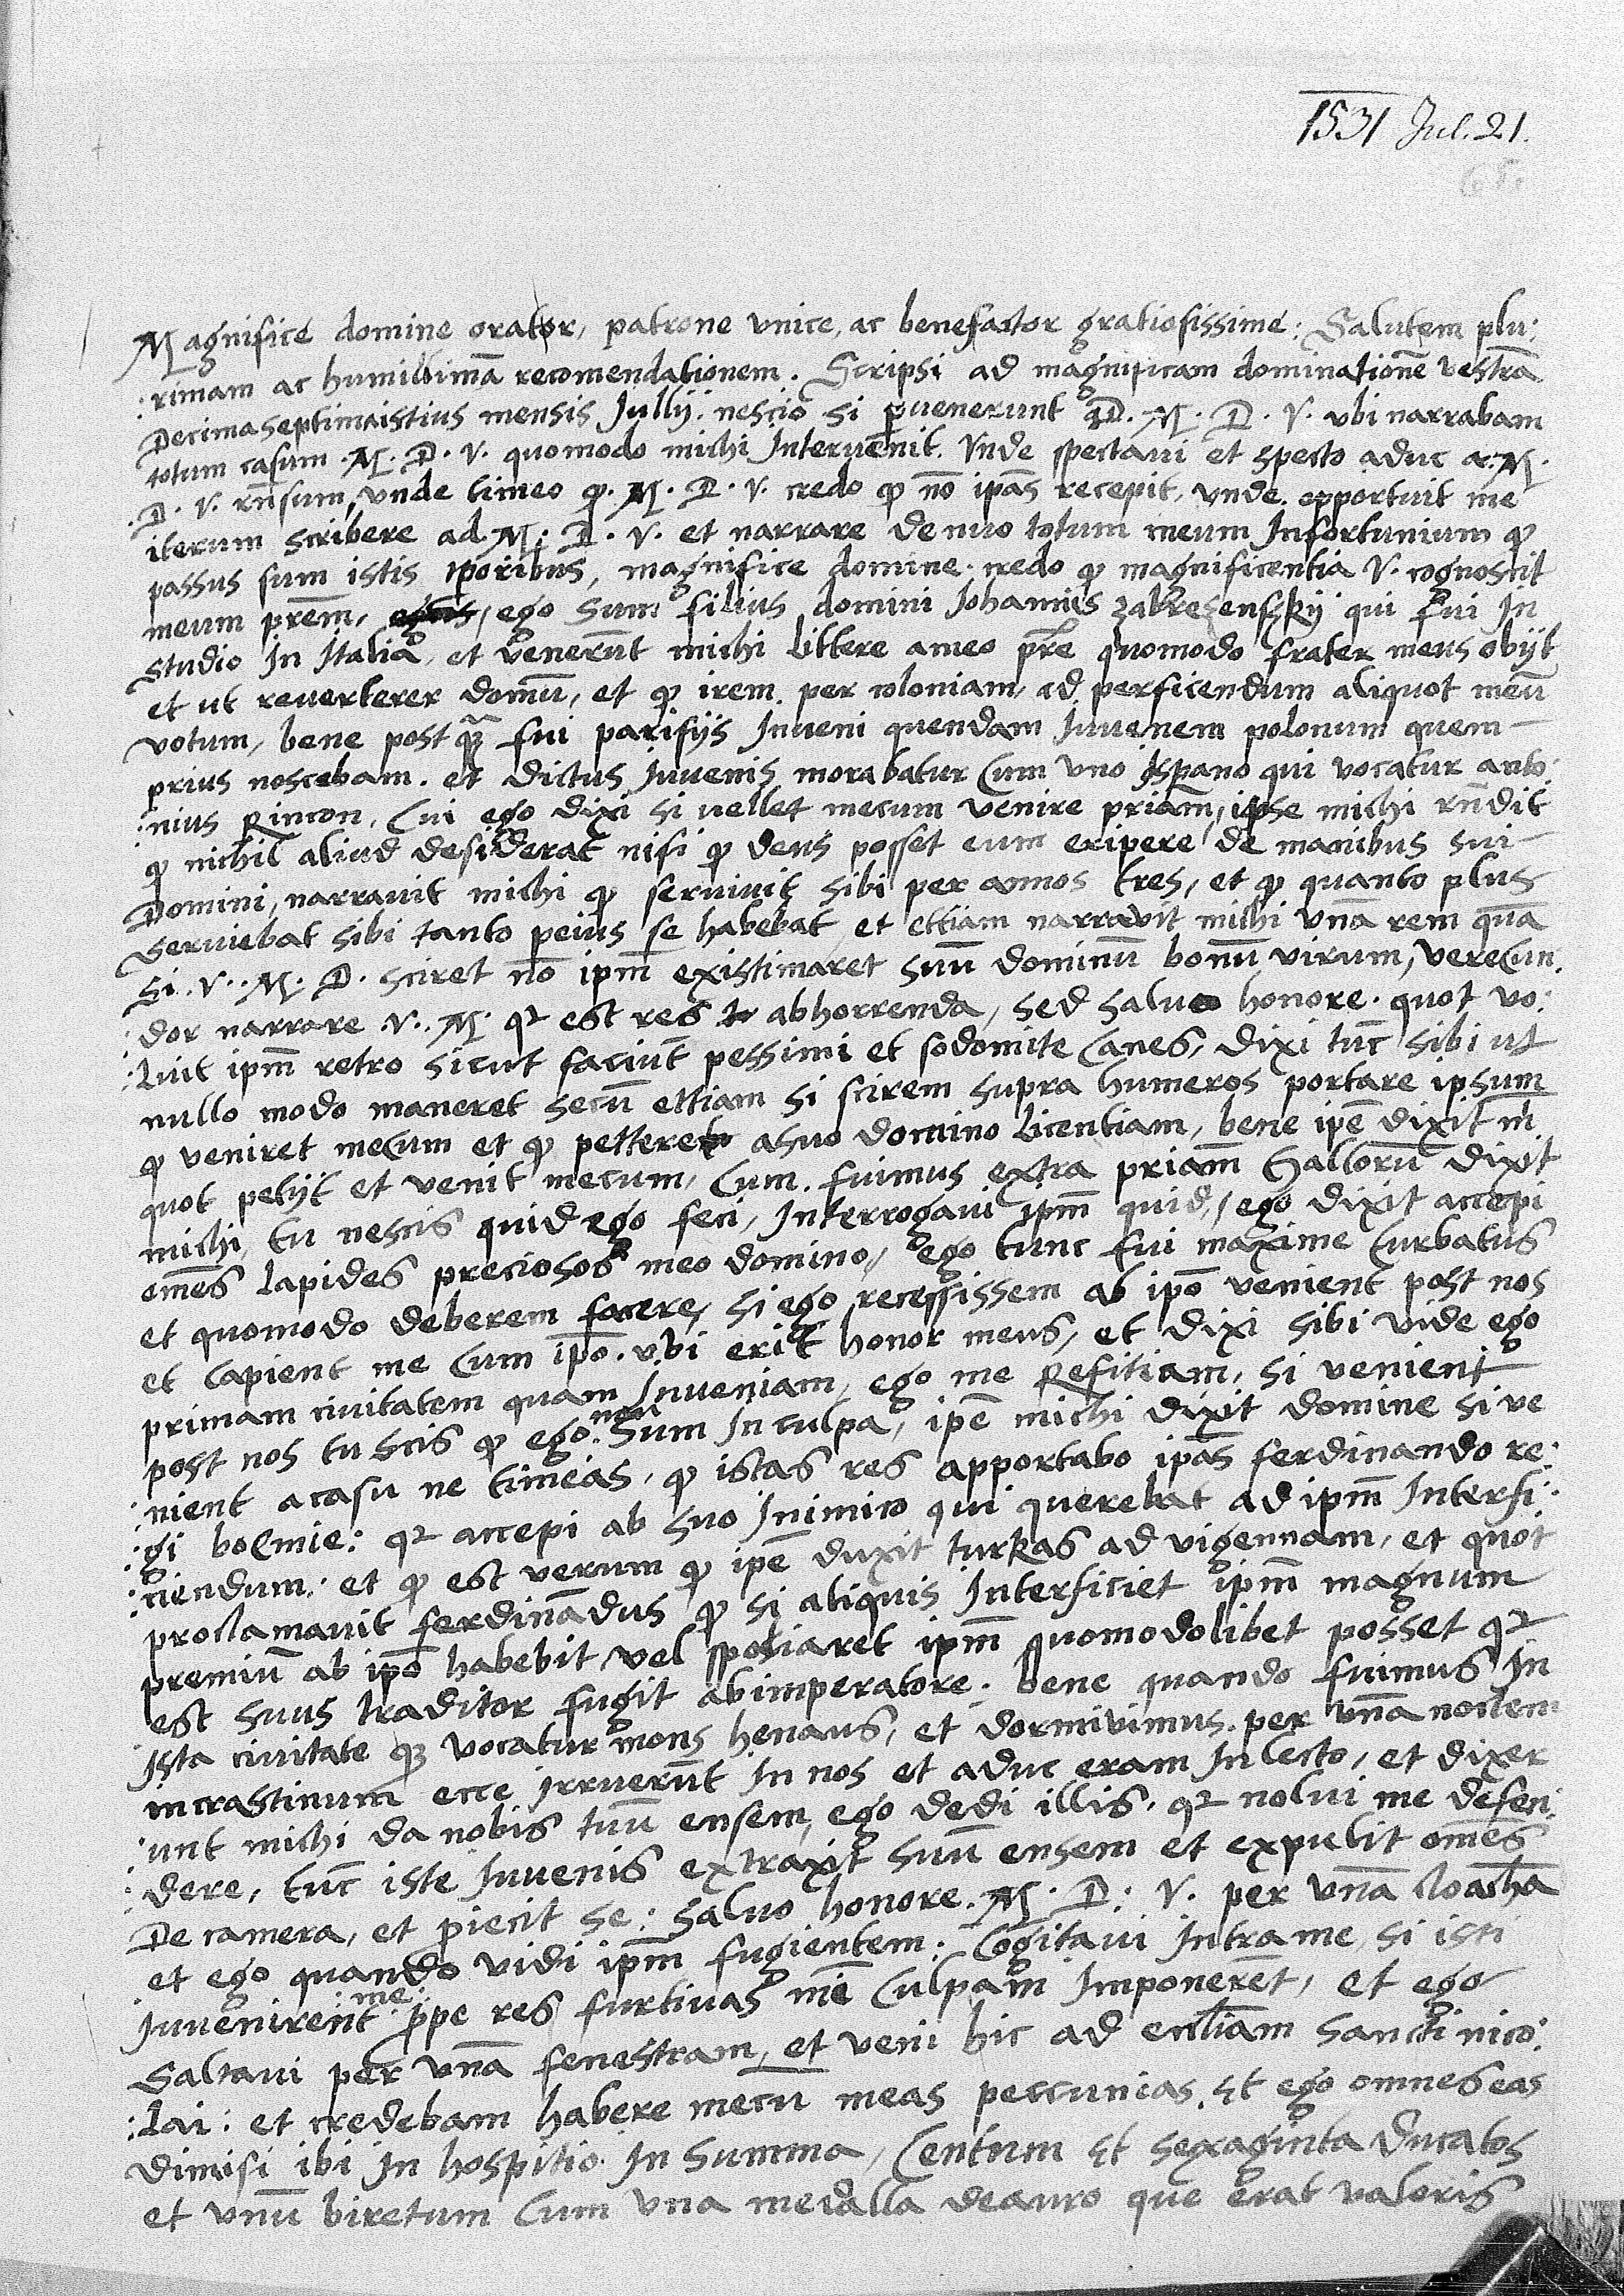 1531 Jul. 21.
Magnifice domine orator, patrone unice, ac benefactor gratiosissime: Salutem plu:
:rimam ac humillimā recomendationem. Scripsi ad magnificam dominationē vestrā
Decimaseptima istius mensis Jullij. nescio si pvenerunt ad. M. D. V. ubi narrabam
totum casum .M. D. V. quomodo michi Intervenit. Unde spectavi et specto aduc a. M.
.D. V. rn̄sum, unde timeo qȝ. M. D. V. credo qȝ nō ipās recepit, unde opportuit me
iterum scribere ad. M. D. V. et narrare denuo totum meum Infortunium qȝ
passus sum istis tporibus, magnifice domine. credo qȝ magnificentia V. cognoscit
meum prēm, ego sum filius domini Johannis zabrezensskij qui fui In
studio In Italia, et venerūt michi littere a meo prē quomodo frater meus obijt
et ut reverterer domū, et qȝ irem per coloniam, ad perficendum aliquot meū
votum, bene postqȝ fui parisijs Inveni quendam Iuvenem polonum quem
prius noscebam. et dictus Iuvenis morabatur Cum uno hispano qui vocatur anto:
:nius Rincon, Cui ego dixi si vellet mecum venire priām, ipse michi rn̄dit
qȝ nichil aliud desiderat nisi qȝ deus posset eum eripere de manibus sui
Domini, narravit michi qȝ servivit sibi per annos tres, et qȝ quanto plus
Serviebat sibi tanto peius se habebat, et ettiam narravit michi unā rem quā
si. V. M. D. sciret nō ipm̄ existimaret suū dominū bonū virum, verecun:
:dor narrare .V. M. qr est res abhorrenda, sed salvo honore. quot vo:
:luit ipm̄ retro sicut faciūt pessimi et sodomite Canes, dixi tūc sibi ut
nullo modo maneret secū ettiam si scirem supra humeros portare ipsum
qȝ veniret mecum et qȝ petteret a suo domino licentiam, bene ipē dixit m̄
quot petijt et venit mecum, Cum fuimus extra priām Gallorū dixit
michi, tu nescis quid ego feci, Interrogavi ipm̄ quid, ego dixit accepi
omēs lapides preciosos meo domino, ego tunc fui maxime turbatus
et quomodo deberem facere, si ego recessissem ab ipō venient post nos
et capient me Cum ipō. ubi erit honor meus, et dixi sibi vide ego
primam civitatem quam Inveniam, ego me Refitiam, si venient
post nos tu scis qȝ ego non sum In culpa, ipē michi dixit domine si ve
:nient a casu ne timeas, qȝ istas res apportabo ipās ferdinando re:
:gi boemie: qr accepi ab suo Inimico qui querebat ad ipm̄ Interfi:
:ciendum: et qȝ est verum qȝ ipē duxit turkas ad vigennam, et quot
proclamavit ferdinādus qȝ si aliquis Interficiet ipm̄ magnum
premiū ab ipō habebit, vel spoliaret ipm̄ quomodolibet posset qr
est suus traditor fugit ab imperatore. bene quando fuimus In
Ista civitate qȝ vocatur mons henaus, et dormivimus per unā noctem
in crastinum ecce irruerūt In nos et aduc eram In lecto, et dixer
:unt michi da nobis tuū ensem, ego dedi illis, qr nolui me defen:
:dere, tūc iste Iuvenis extraxit suū ensem et expulit omēs
De camera, et piecit se: salvo honore. M. D. V. per unā cloachā
et ego quando vidi ipm̄ fugientem: Cogitavi Intra me, si isti
Iuvenirent me prope res furtivas m̄ Culpam Imponerēt, et ego
Saltavi per unā fenestram, et veni hic ad eccliam sancti nico:
:lai: et credebam habere mecū meas peccunias. Et ego omnes eas
dimisi ibi In hospitio. In Summa, Centum Et sexaginta Ducatos
et unū biretum Cum una medalla de auro que erat valoris